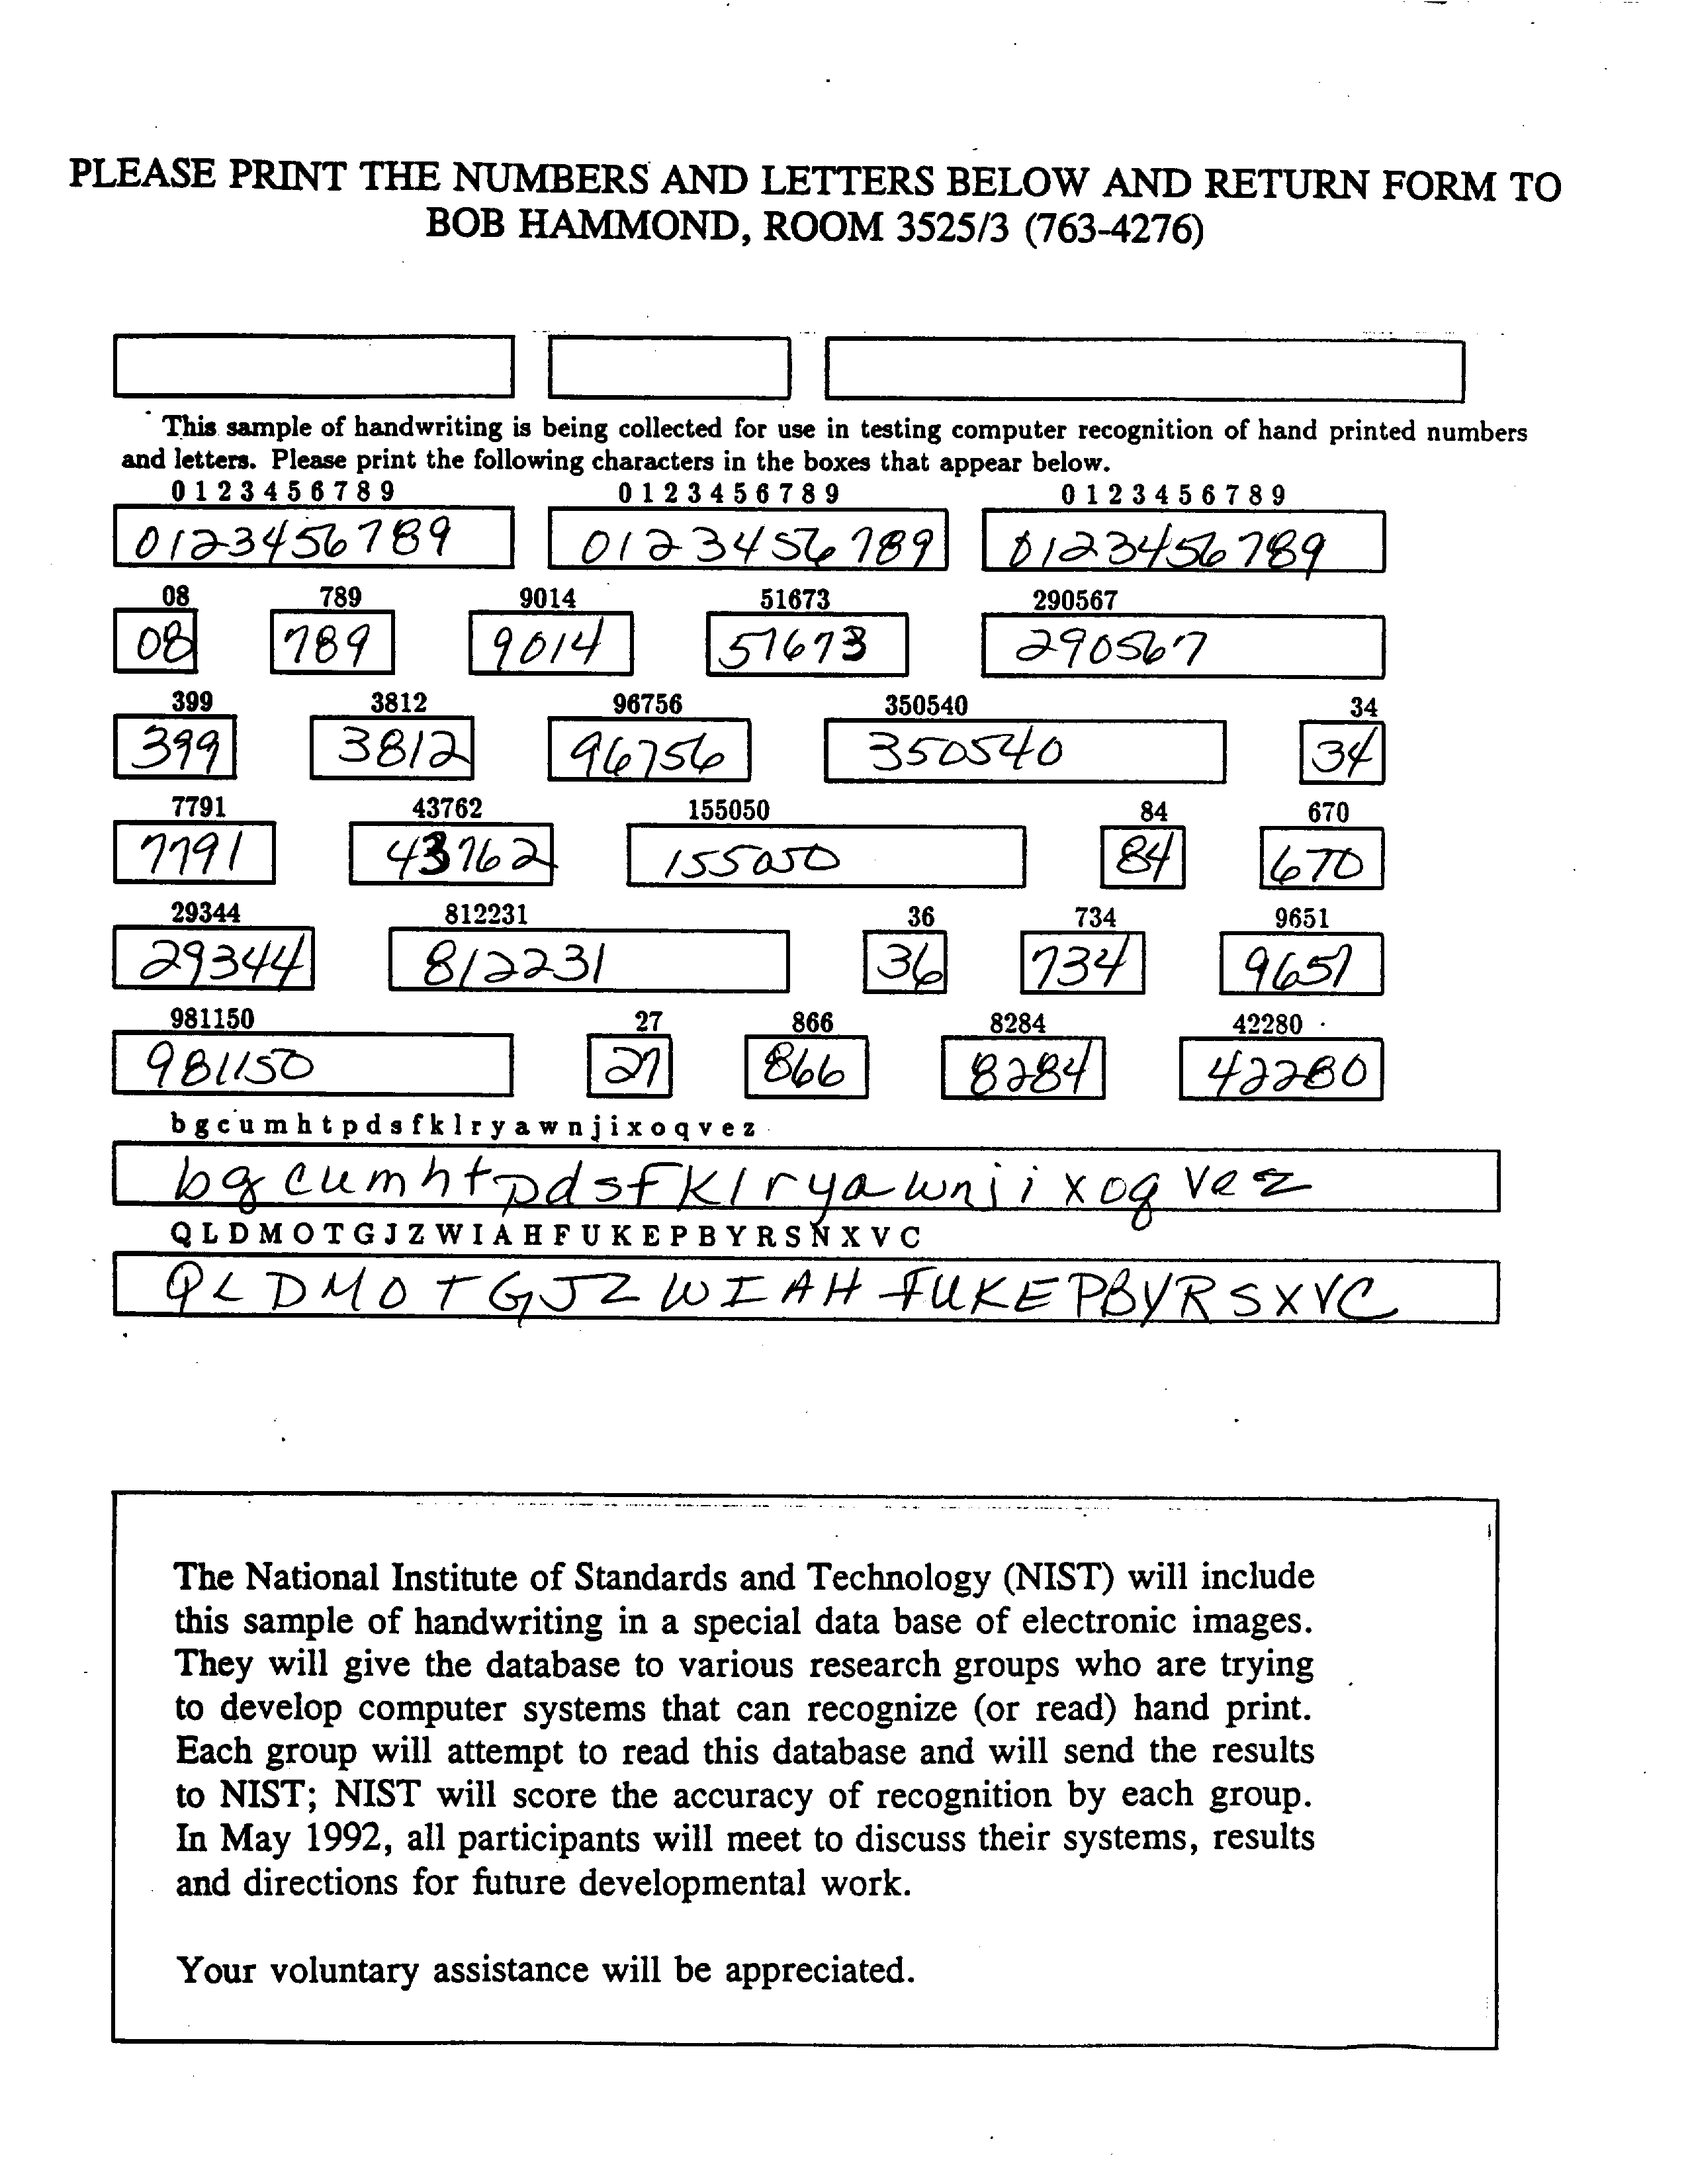 PLEASE PRINT THE NUMBERS AND LETTERS BELOW AND RETURN FORM TO
BOB HAMMOND, ROOM 3525/3 (763-4276)
This sample of handwriting is being collected for use in testing computer recognition of hand printed numbers
and letters. Please print the following characters in the boxes that appear below.
0 1 2 3 4 5 6 7 8 9 0 1 2 3 4 5 6 7 8 9 0 1 2 3 4 5 6 7 8 9
0123456789 0123456789 0123456789
08 789 9014 51673 290567
08 789 9014 51673 290567
399 3812 96756 350540 34
399 3812 96756 350540 34
7791 43762 155050 84 670
7791 43762 155050 84 670
29344 812231 36 734 9651
29344 812231 36 734 9651
981150 27 866 8284 42280
981150 27 866 8284 42280
b g c u m h t p d s f k l r y a w n j i x o q v e z
b g c u m h t p d s f k l r y a w n j i x o q v e z
Q L D M O T G J Z W I A H F U K E P B Y R S N X V C
Q L D M O T G J Z W I A H F U K E P B Y R S X V C
The National Institute of Standards and Technology (NIST) will include
this sample of handwriting in a special data base of electronic images.
They will give the database to various research groups who are trying
to develop computer systems that can recognize (or read) hand print.
Each group will attempt to read this database and will send the results
to NIST; NIST will score the accuracy of recognition by each group.
In May 1992, all participants will meet to discuss their systems, results
and directions for future developmental work.
Your voluntary assistance will be appreciated.